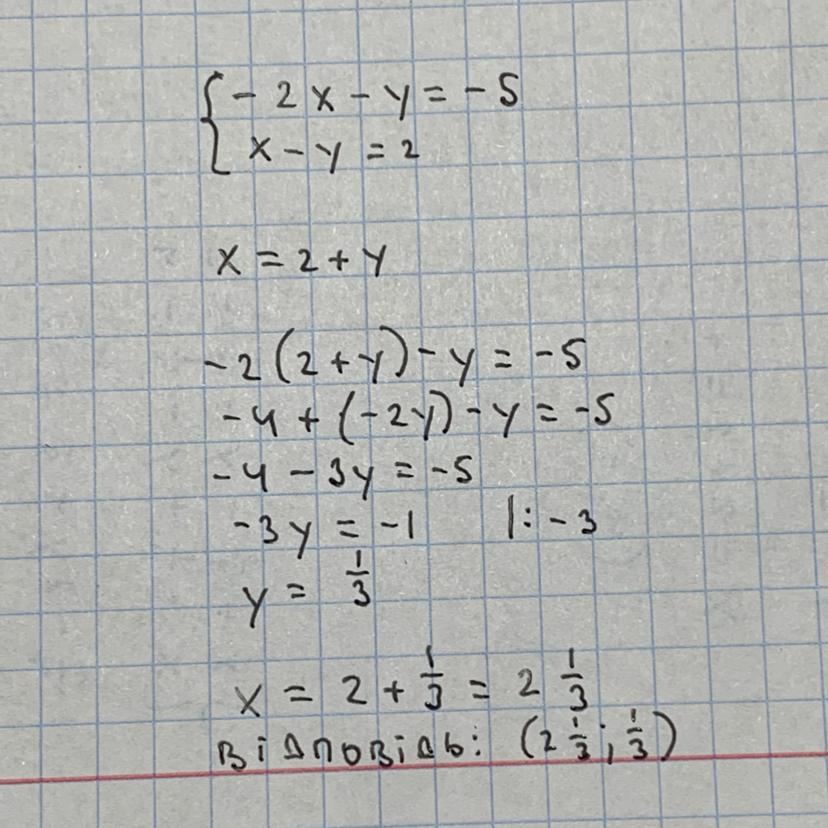 { - 2x - y = -5
x - y = 2
x = 2 + y
-2(2 + y) - y = -5
-4 + (-2y) - y = -5
-4 - 3y = -5
-3y = -1 |: -3
y = 1/3
x = 2 + 1/3 = 2 1/3
Відповідь: (2 1/3; 1/3)